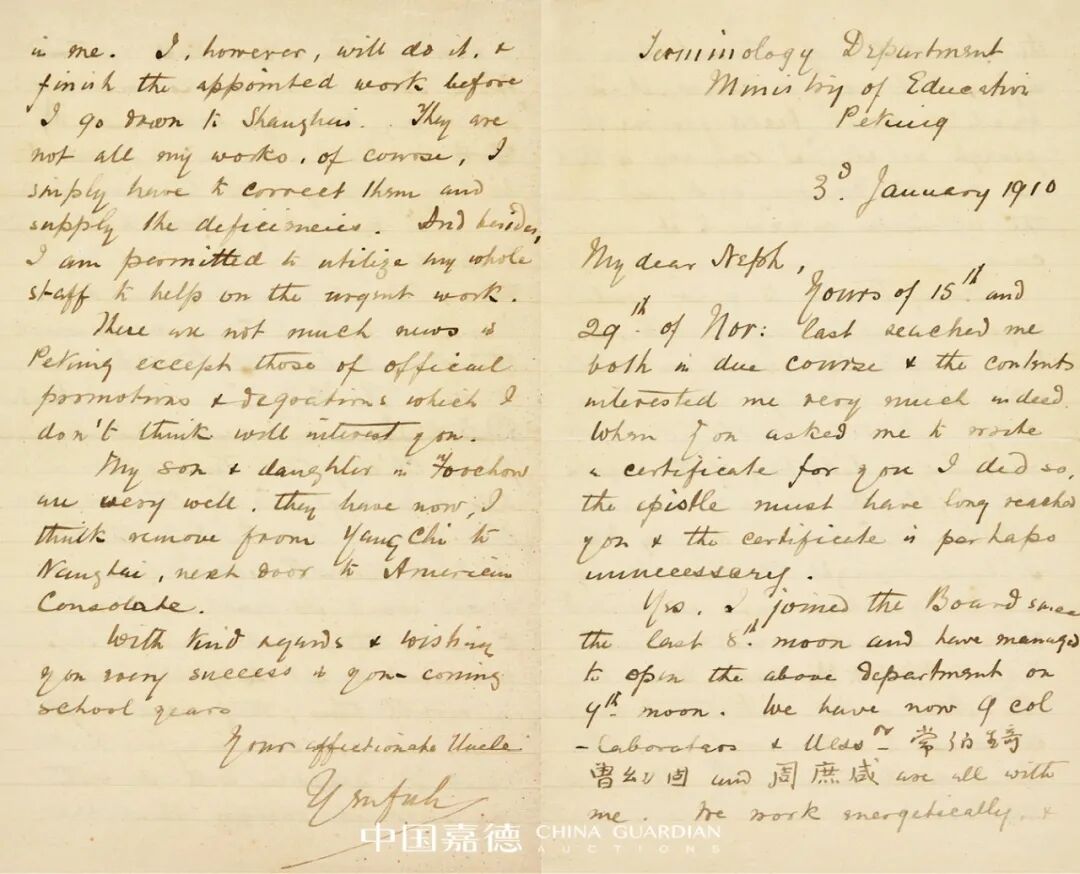 Terminology Department
Ministry of Education
Peking
3d. January 1910
My dear Neph,
Yours of 15th and
29th. of Nov: last reached me
both in due course & the contents
interested me very much indeed.
When you asked me to write
a certificate for you I did so,
the epistle must have long reached
you & the certificate is perhaps
unnecessary.
Yes, I joined the Board since
the last 8th. moon and have managed
to open the above department on
9th. moon. We have now 9 col
-laborators & Messrs 常伯琦
曾幼固 and 周庶咸 are all with
me. We work energetically, &
in me. I, however, will do it, &
finish the appointed work before
I go down to Shanghai. They are
not all my works, of course, I
simply have to correct them and
supply the deficiencies. And besides,
I am permitted to utilize my whole
staff to help on the urgent work.
There are not much news in
Peking except those of official
promotions & degrations which I
don't think will interest you.
My son & daughter in Foochow
are very well. they have now, I
think remove from Yang Chi to
Nangtai, next door to American
Consolate.
With kind regards & wishing
you every success in your coming
school years
Your affectionate Uncle
Yen Fuh
中国嘉德 CHINA GUARDIAN
AUCTIONS